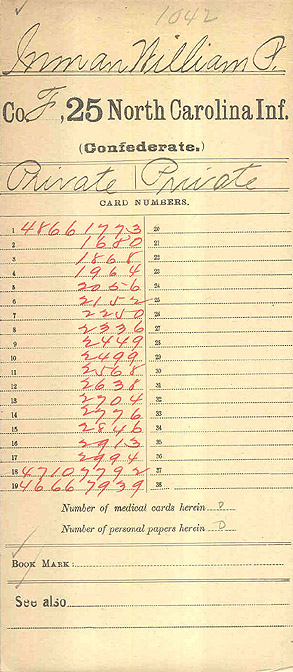 1042
Inman William P.
Co F, 25 North Carolina Inf.
(Confederate.)
Private | Private
CARD NUMBERS.
1 48661773 20
2 1680 21
3 1868 22
4 1964 23
5 2056 24
6 2152 25
7 2250 26
8 2336 27
9 2449 28
10 2499 29
11 2568 30
12 2638 31
13 2704 32
14 2776 33
15 2846 34
16 2913 35
17 2994 36
18 47107792 37
19 46667939 38
Number of medical cards herein 0
Number of personal papers herein 0
BOOK MARK:
See also